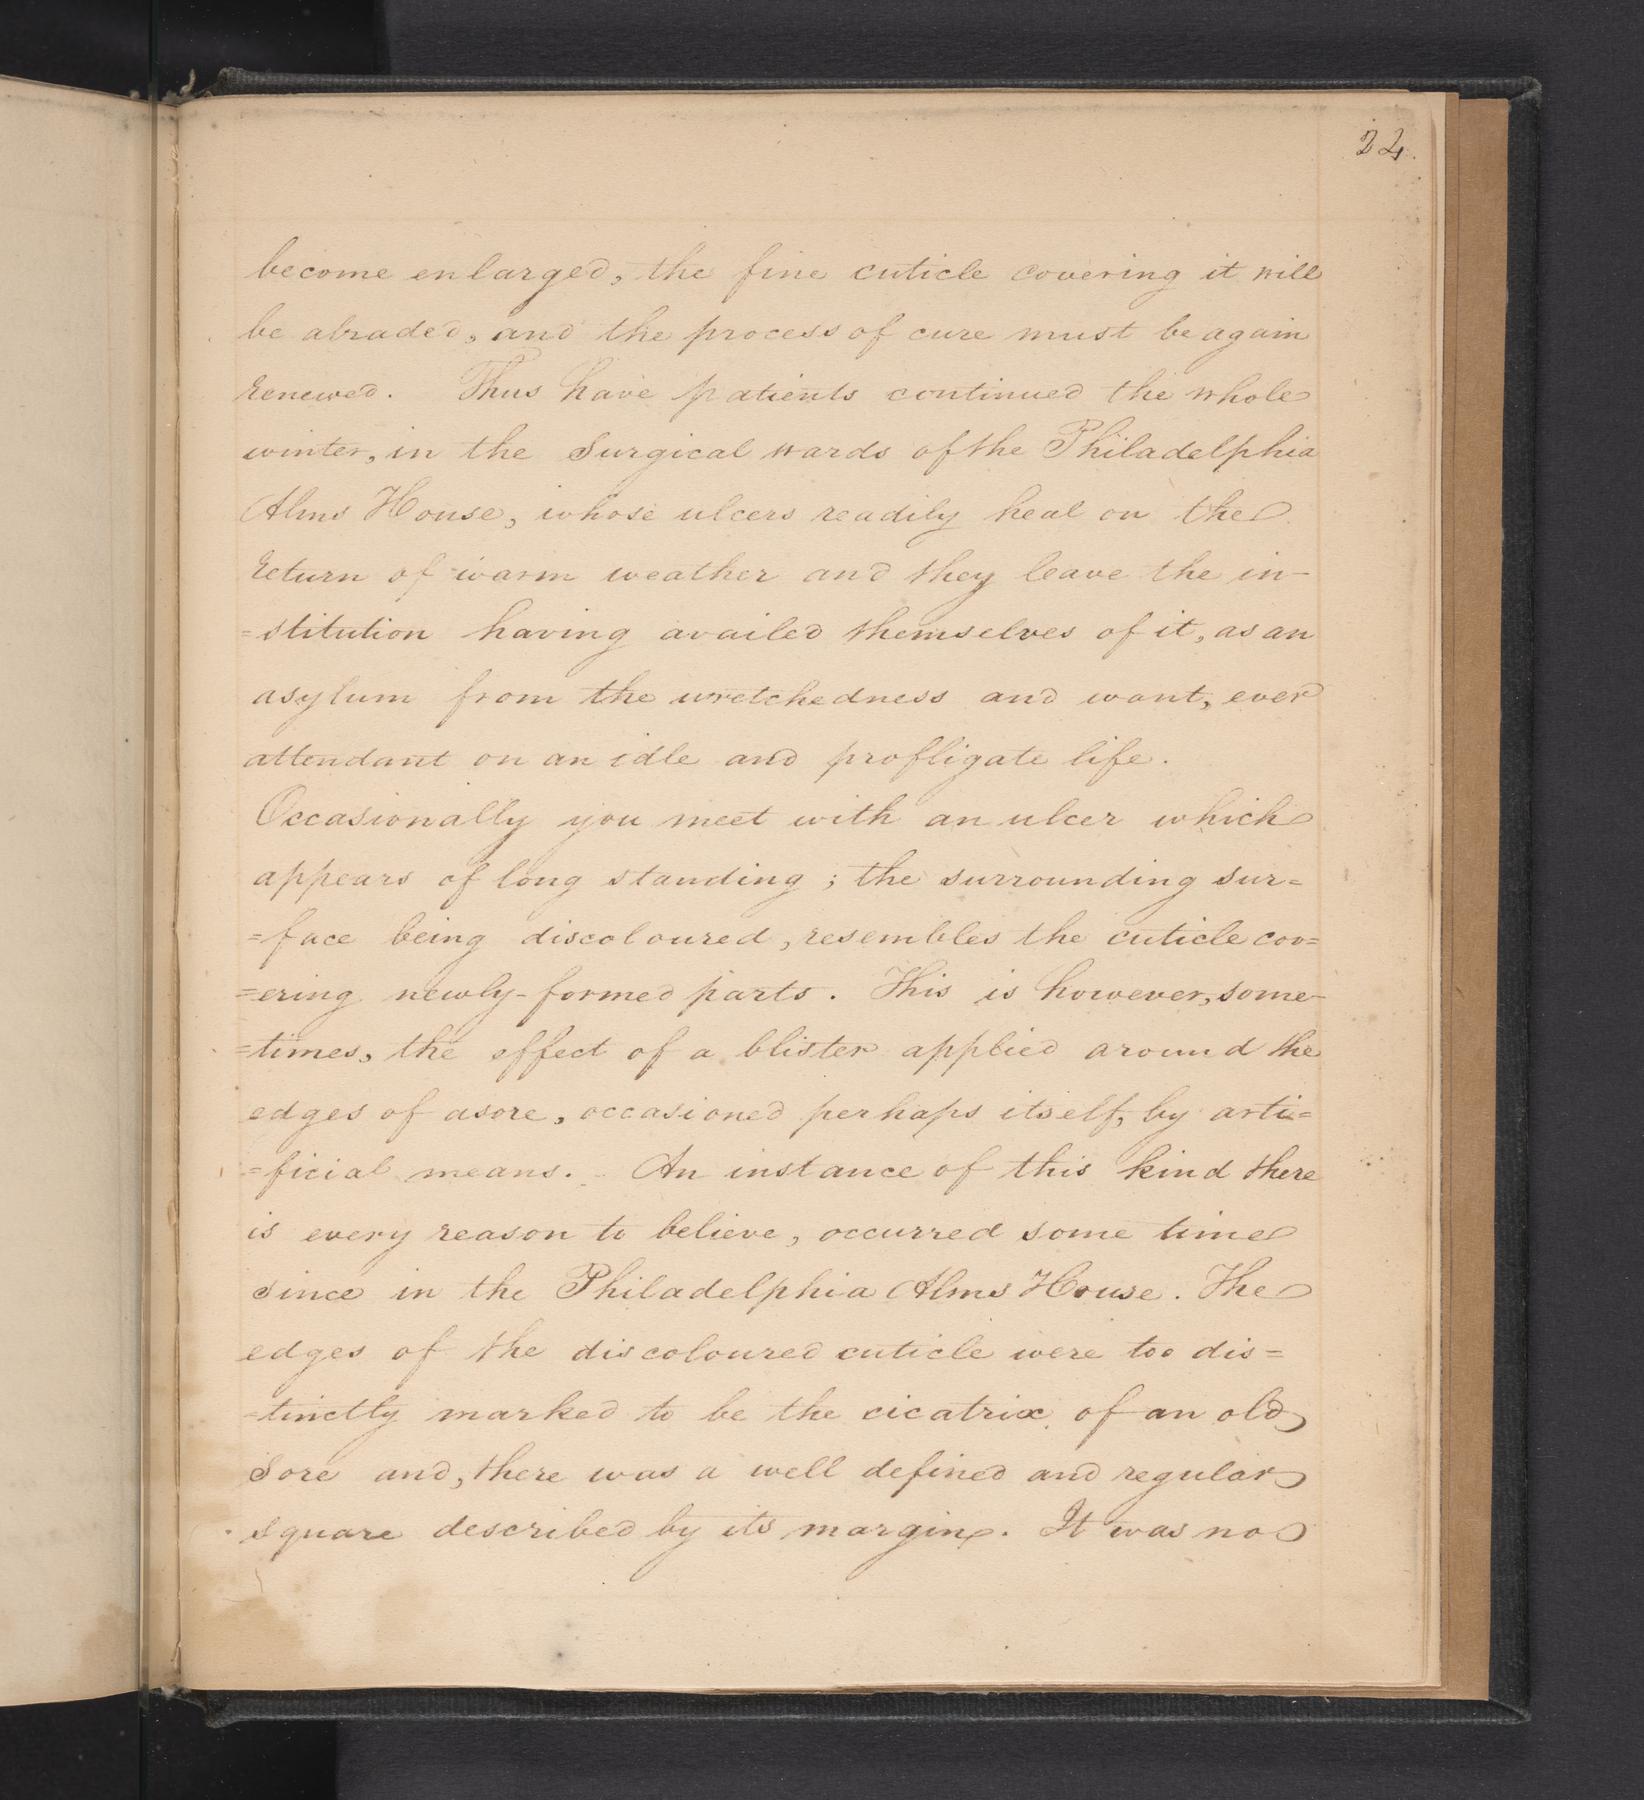 24.
become enlarged, the fine cuticle covering it will
be abraded, and the process of cure must be again
renewed. Thus have patients continued the whole
winter, in the Surgical wards of the Philadelphia
Alms House, whose ulcers readily heal on the
return of warm weather and they leave the in-
=stitution having availed themselves of it, as an
asylum from the wretchedness and want, ever
attendant on an idle and profligate life.
Occasionally you meet with an ulcer which
appears of long standing; the surrounding sur=
=face being discoloured, resembles the cuticle cov=
=ering newly-formed parts. This is however, some-
=times, the effect of a blister applied around the
edges of a sore, occasioned perhaps itself, by arti=
=ficial means. An instance of this kind there
is every reason to believe, occurred some time
since in the Philadelphia Alms House. The
edges of the discoloured cuticle were too dis=
=tinctly marked to be the cicatrix of an old
Sore and, there was a well defined and regular
square described by its margin. It was no